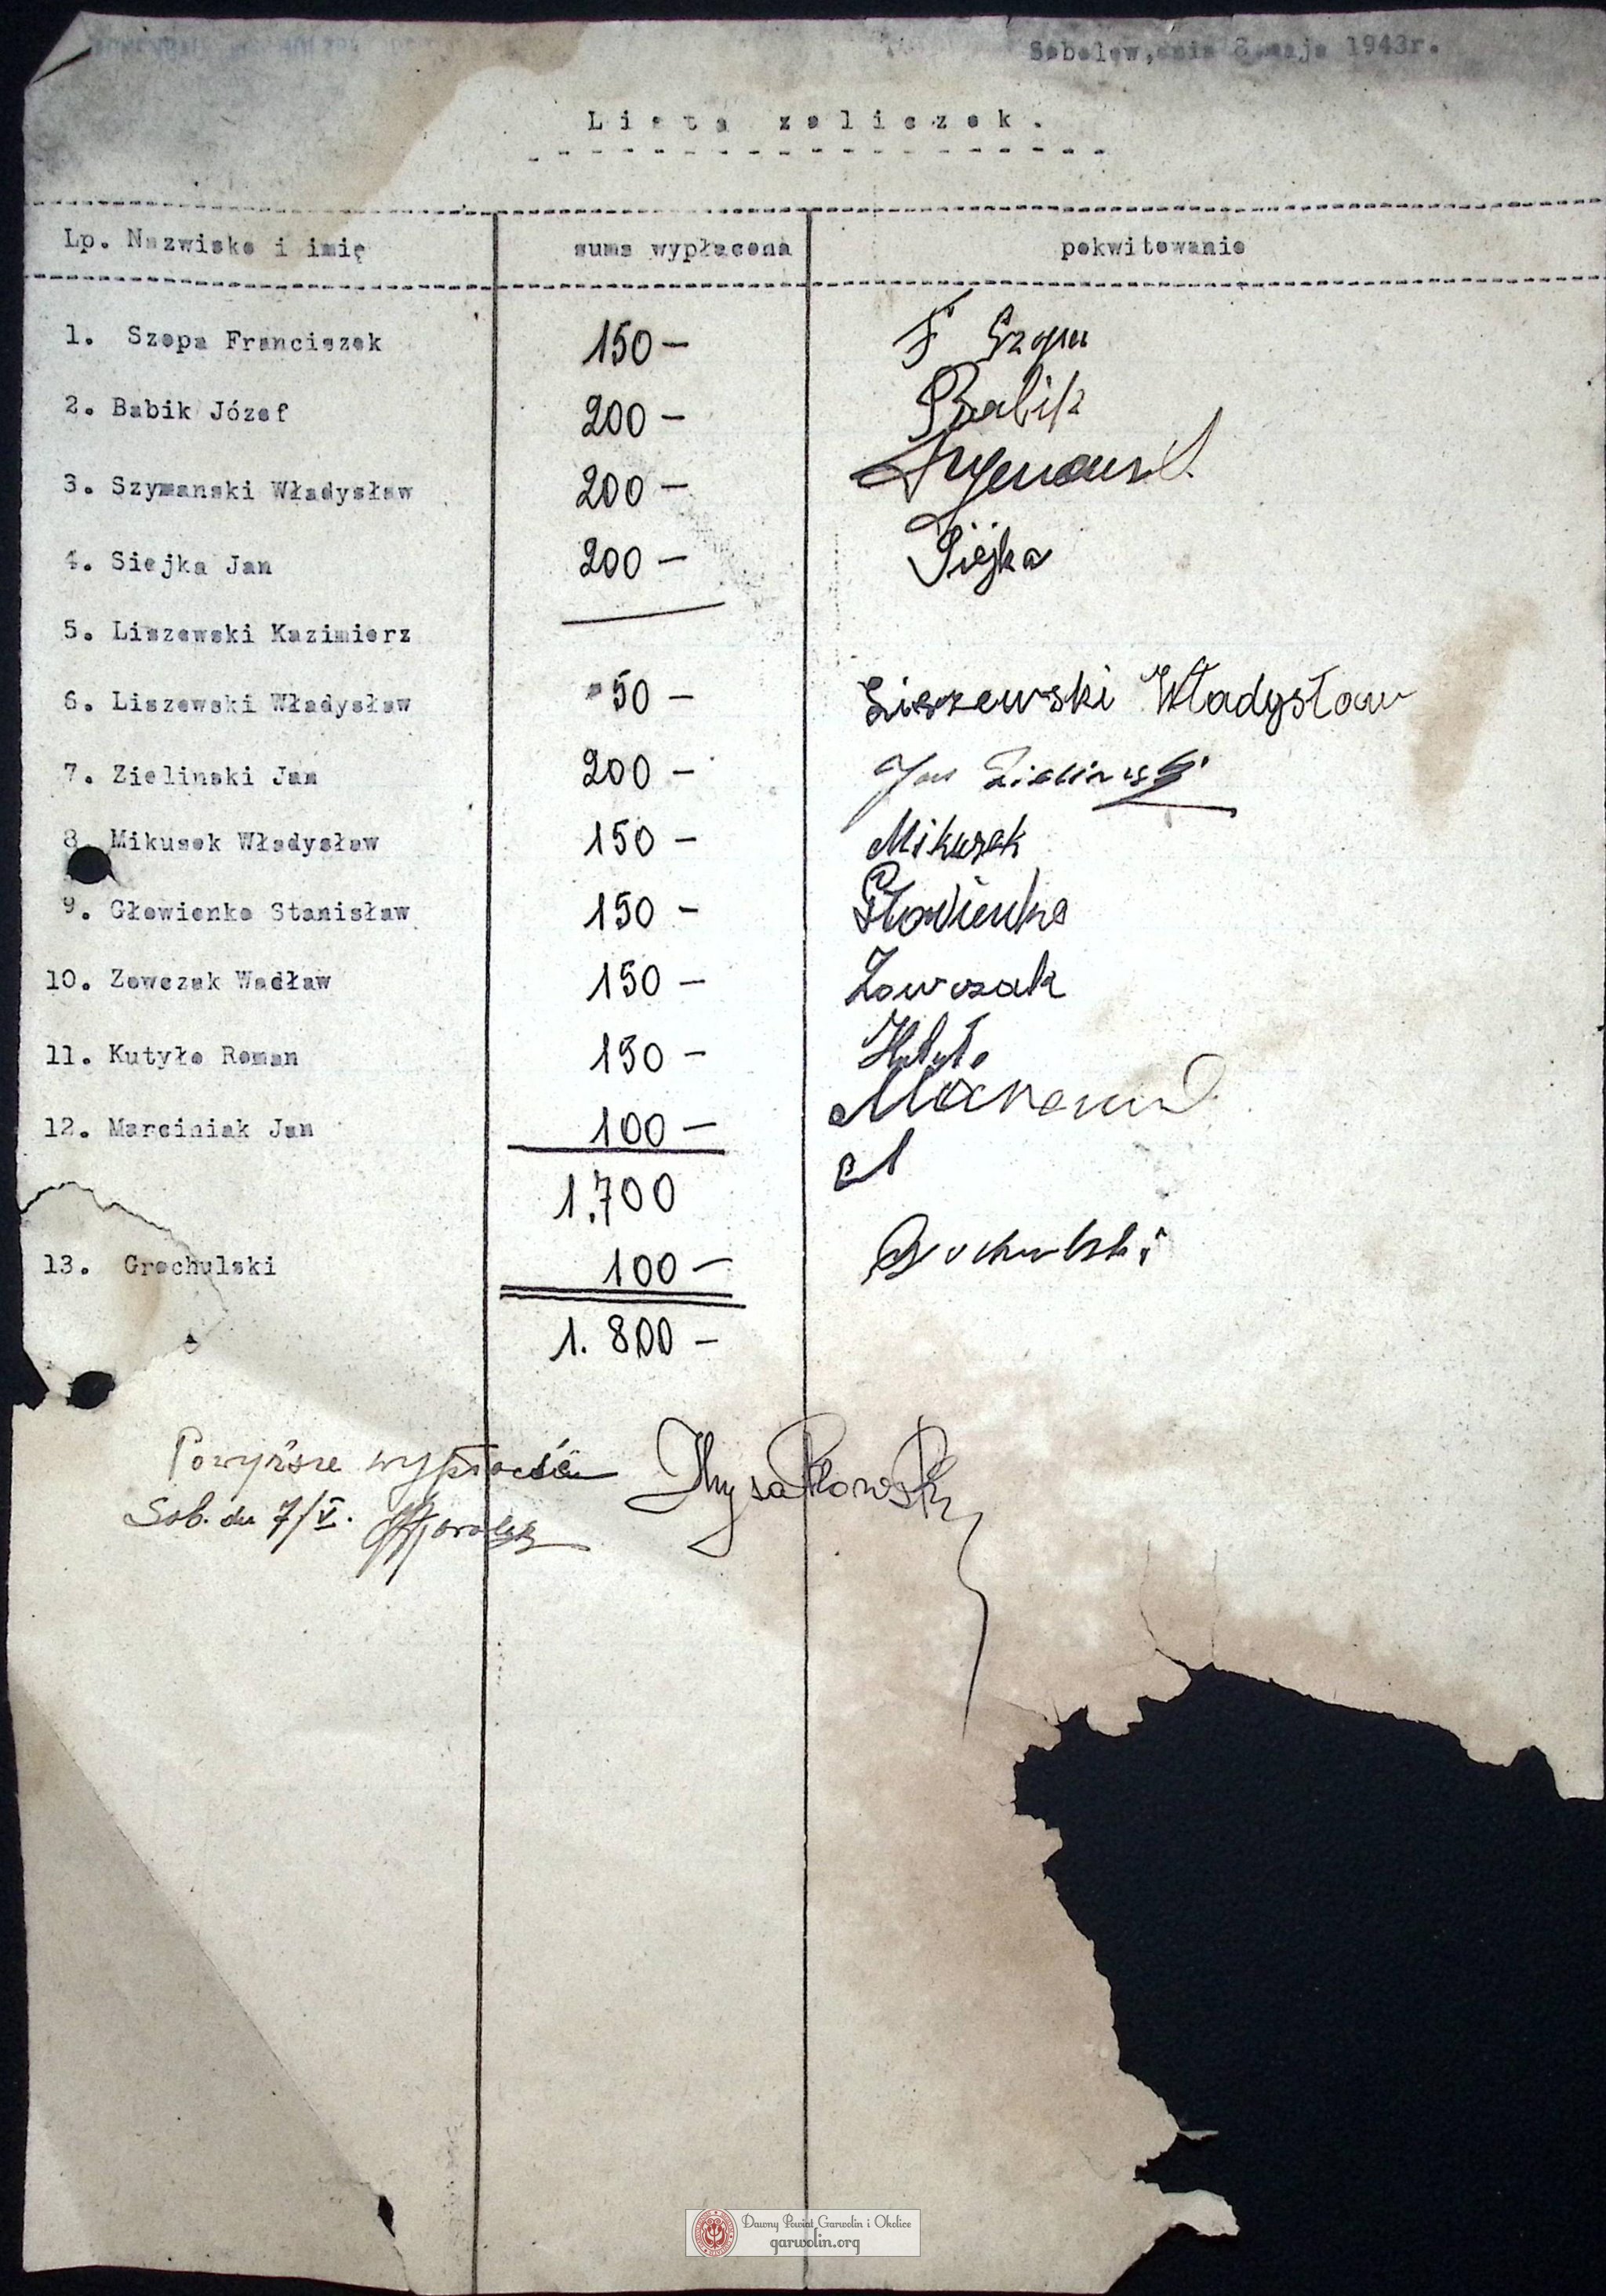 Sobolew, dnia 8 maja 1943r.
Lista zaliczek.
Lp. Nazwisko i imię suma wypłacona pokwitowanie
1. Szopa Franciszek 150 — F Szopa
2. Babik Józef 200 — Babik
3. Szymanski Władysław 200 —
4. Siejka Jan 200 — Siejka
5. Liszewski Kazimierz —
6. Liszewski Władysław 50 — Liszewski Władysław
7. Zielinski Jan 200 — Jan Zielinski
8. Mikusek Władysław 150 — Mikusek
9. Głowienko Stanisław 150 — Głowienko
10. Zowczak Wacław 150 — Zowczak
11. Kutyło Roman 150 — Kutyło
12. Marciniak Jan 100 —
1.700
13. Grochulski 100 — Grochulski
1.800 —
Powyższe
Sob. dn 7/V.
Dawny Powiat Garwolin i Okolice
garwolin.org